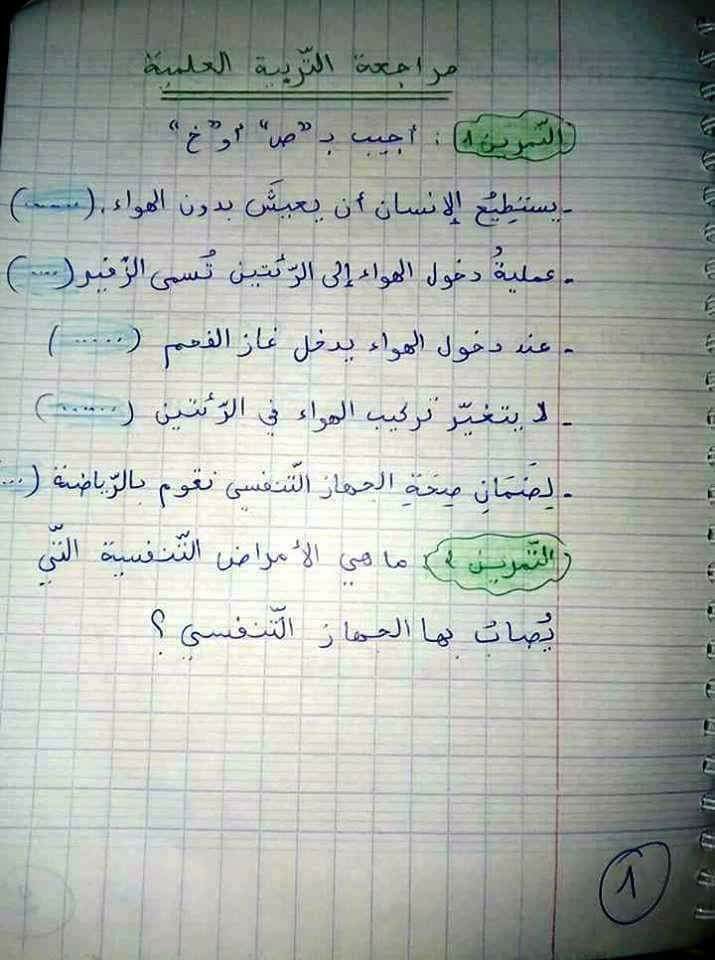 مراجعة التّربية العلمية
التّمرين 1 : أجيب بـ "ص" أو "خ"
- يستطِيعُ الإنسان أن يعيشَ بدون الهواء. (......)
- عمليةُ دخول الهواء إلى الرّئتين تُسمى الزّفير (....)
- عند دخول الهواء يدخل غاز الفحم (.....)
- لا يتغيّر تركيب الهواء في الرّئتين (......)
- لِضَمَانِ صِحَةِ الجهاز التّنفسي نقوم بالرّياضة (...
التّمرين 2 ما هي الأمراض التّنفسية التّي
يُصابُ بها الجهاز التّنفسي ؟
1